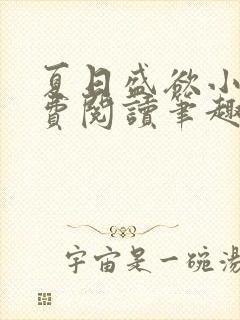 夏日盛欲小
費閱讀筆趣
宇宙是一碗湯